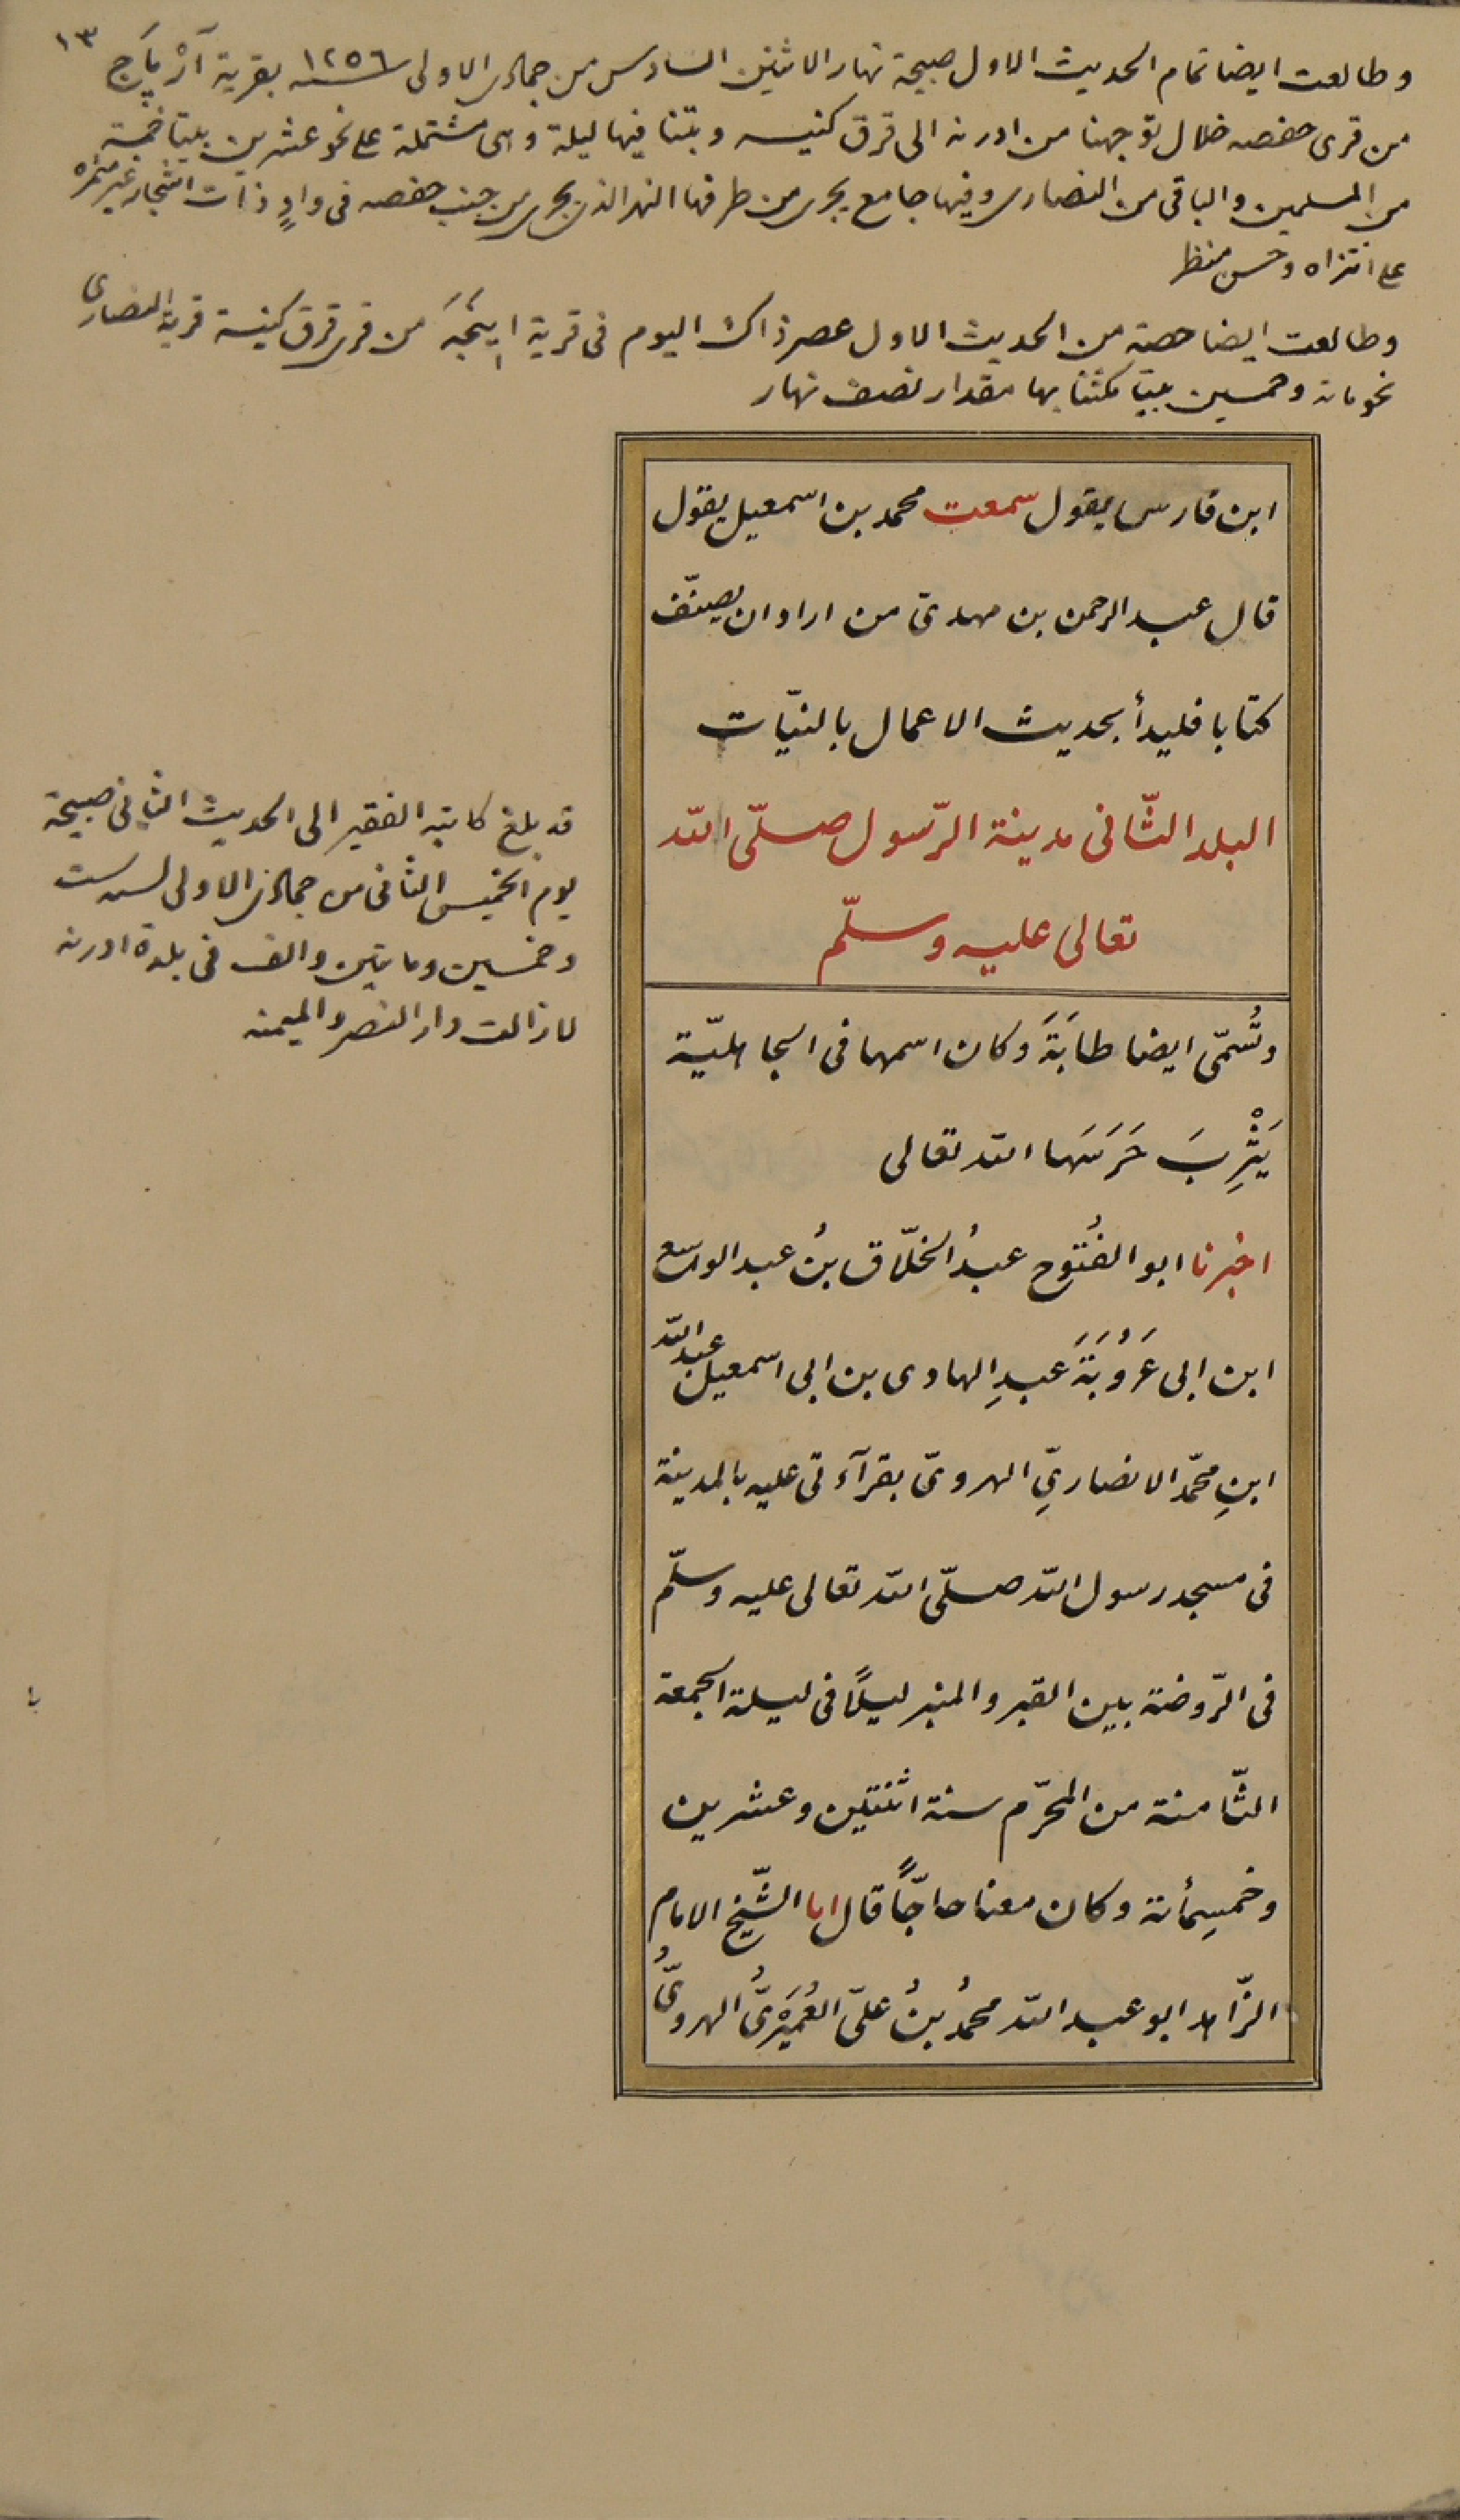 ١٣
وطالعت ايضا تمام الحديث الاول صبيحة نهار الاثنين السادس من جمادى الاولى سنة ١٢٥٦ بقرية
من قرى حفصه خلال توجهنا من ادرنه الى قرق كنيسه وبتنا فيها ليلة وهى مشتملة على نحو عشرين بيتا خمسة
من المسلمين والباقى من النصارى وفيها جامع يجرى من طرفها النهر الذى يجرى من جنب حفصه فى وادٍ ذات اشجار غير مثمره
على انتزاه وحسن منظر
وطالعت ايضا حصة من الحديث الاول عصر ذاك اليوم فى قرية من قرى قرق كنيسة قرية النصارى
نحو مائة وخمسين بيتا مكثنا بها مقدار نصف نهار
ابن فارس يقول سمعت محمد بن اسمعيل يقول
قال عبد الرحمن بن مهدىّ من اراد ان يصنّف
كتابا فليبدأ بحديث الاعمال بالنيّات
البلد الثّانى مدينة الرّسول صلّى الله
تعالى عليه وسلّم
وتُسمّى ايضا طابَةَ وكان اسمها فى الجاهليّة
يَثْرِبَ حَرَسَها الله تعالى
اخبرنا ابو الفُتُوح عبدُ الخلّاق بنُ عبد الواسع
ابن ابى عَرُوبَةَ عبدِ الهادى بن ابى اسمعيل عبد الله
ابنِ محمّد الانصارىِّ الهروىّ بقرآءتى عليه بالمدينة
فى مسجد رسول الله صلّى الله تعالى عليه وسلّم
فى الرّوضة بين القبر والمنبر ليلًا فى ليلة الجمعة
الثّامنة من المحرّم سنة اثنتين وعشرين
وخمسِمأئة وكان معنا حاجًّا قال ابا الشّيخ الامام
الزّاهد ابو عبد الله محمدُ بنُ علىّ العُمَيْرىُّ الهروىُّ
قد بلغ كاتبه الفقير الى الحديث الثانى صبيحة
يوم الخميس الثانى من جمادى الاولى لسنة ست
وخمسين ومائتين والف فى بلدة ادرنه
لازالت دار النصر والميمنه